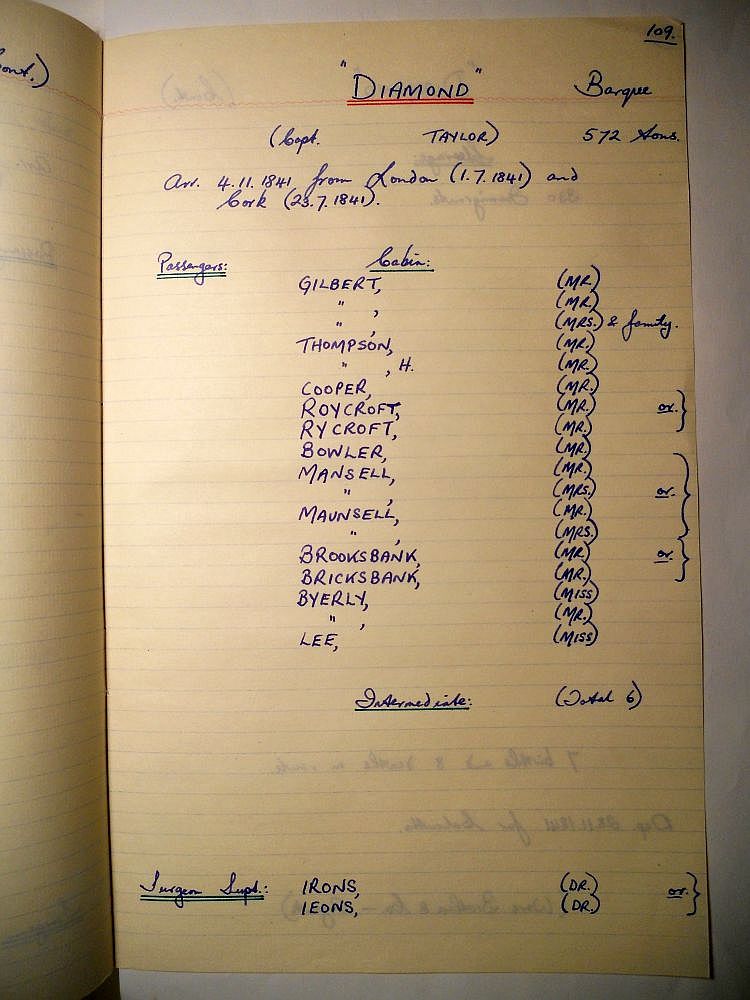 ont.)
109.
"DIAMOND" Barque
(Capt. TAYLOR) 572 tons.
Arr. 4.11.1841 from London (1.7.1841) and
Cork (23.7.1841).
Passengers: Cabin:
GILBERT, (MR)
" , (MR)
" , (MRS.) & family.
THOMPSON, (MR.)
" , H. (MR.)
COOPER, (MR.)
ROYCROFT, (MR.) or.
RYCROFT, (MR.)
BOWLER, (MR.)
MANSELL, (MR.)
" , (MRS.) or.
MAUNSELL, (MR.)
" , (MRS.)
BROOKSBANK, (MR.) or.
BRICKSBANK, (MR.)
BYERLY, (MISS)
" , (MR.)
LEE, (MISS)
Intermediate: (Total 6)
Surgeon Supt.: IRONS, (DR.) or.
IEONS, (DR.)